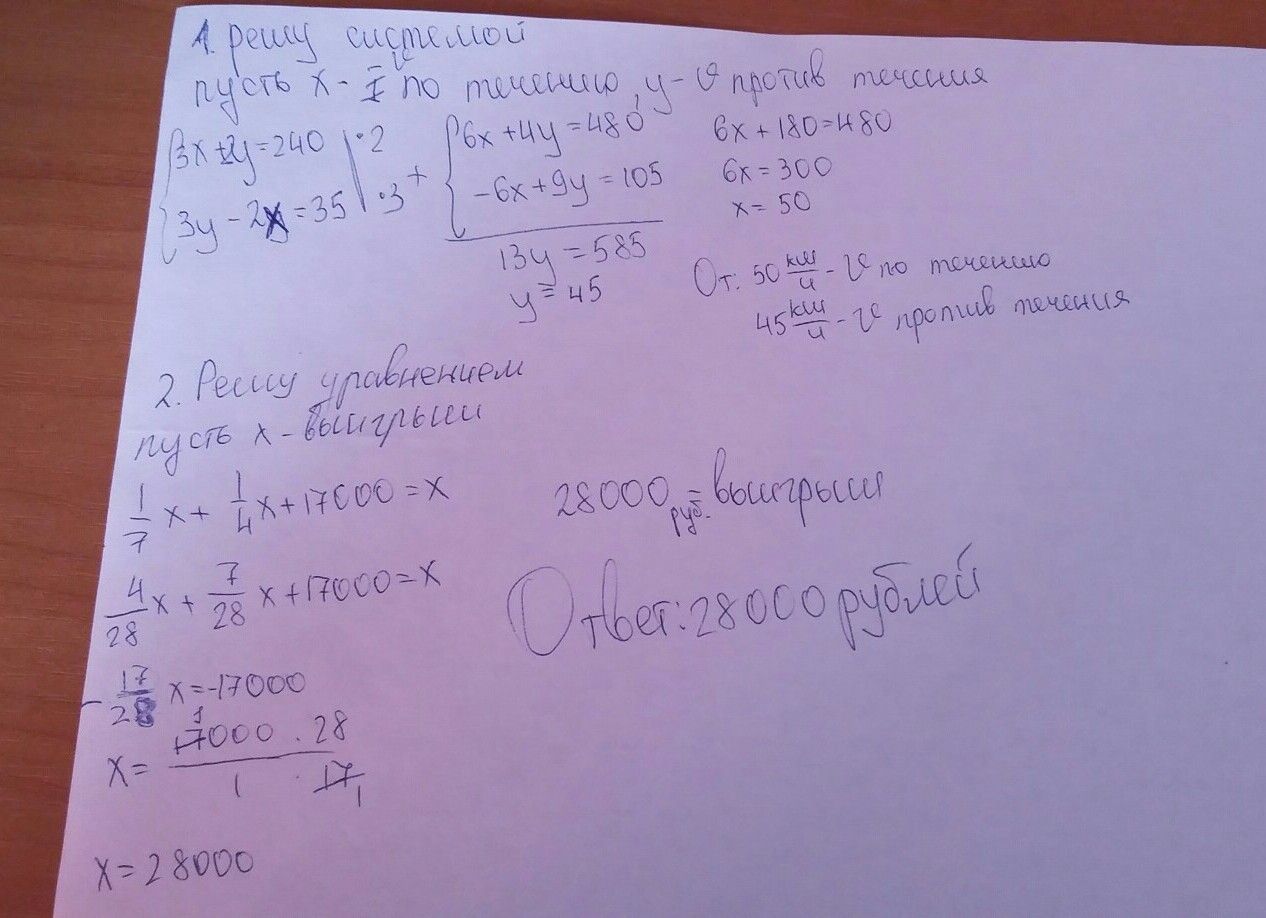 1. решу системой
пусть x - V по течению, y - V против течения
3x + 2y = 240 | ·2
3y - 2x = 35 | ·3
+
6x + 4y = 480
-6x + 9y = 105
13y = 585
y = 45
6x + 180 = 480
6x = 300
x = 50
От: 50 км/ч - V по течению
45 км/ч - V против течения
2. Решу уравнением
пусть x - выигрыш
1/7 x + 1/4 x + 17000 = x
4/28 x + 7/28 x + 17000 = x
- 17/28 x = -17000
x = 17000 · 28 / 1 · 17
1
1
x = 28000
28000 руб. - выигрыш
Ответ: 28000 рублей